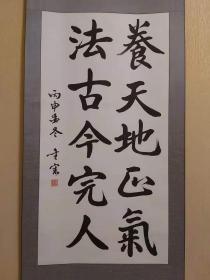 養天地正氣
法古今完人
丙申年冬